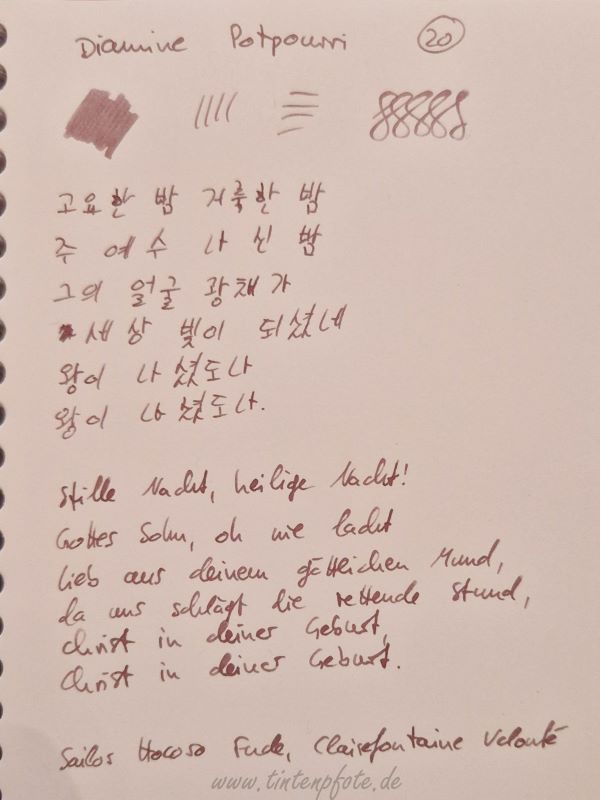 Diamine Potpourri 20
고요한 밤 거룩한 밤
주 예수 나신 밤
그의 얼굴 광채가
세상 빛이 되셨네
왕이 나셨도다
왕이 나셨도다.
Stille Nacht, heilige Nacht!
Gottes Sohn, oh wie lacht
Lieb aus deinem göttlichen Mund,
da uns schlägt die rettende Stund,
Christ in deiner Geburt,
Christ in deiner Geburt.
Sailor Hocoro Fude, Clairefontaine Velouté
www.tintenpfote.de